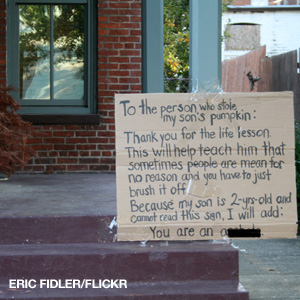 To the person who stole
my son's pumpkin:
Thank you for the life lesson.
This will help teach him that
sometimes people are mean for
no reason and you have to just
brush it off.
Because my son is 2-yrs-old and
cannot read this sign, I will add:
You are an
ERIC FIDLER/FLICKR